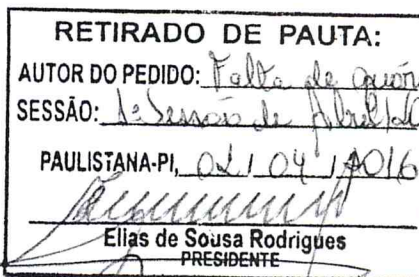 RETIRADO DE PAUTA:
AUTOR DO PEDIDO: Falta de quór
SESSÃO: 1ª Sessão de Abril
PAULISTANA-PI, 01 / 04 / 2016
Elias de Sousa Rodrigues
PRESIDENTE